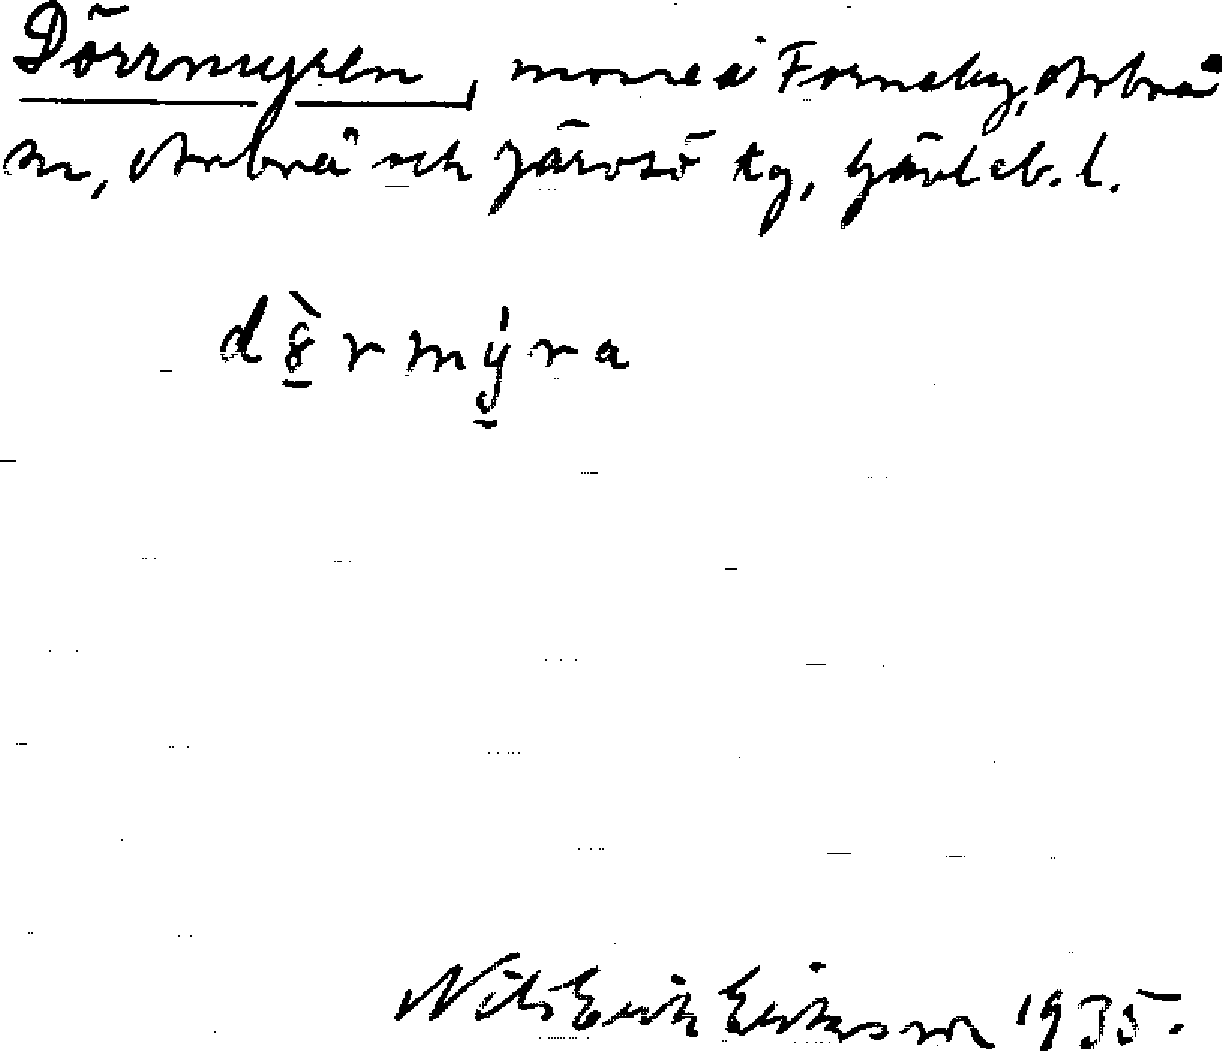 Dörrmyren, mosse i Forneby, Arbrå
sn, Arbrå och Järvsö tg, Gävleb. l.
dörmýra
Nils Erik Eriksson 1935.